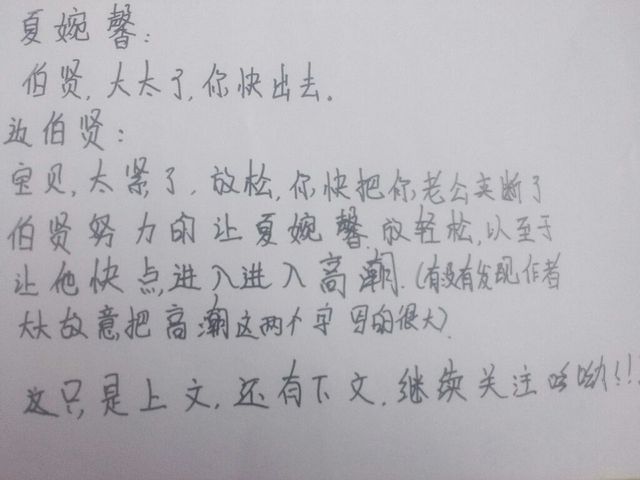 夏婉馨：
伯贤，大太了，你快出去。
边伯贤：
宝贝，太紧了，放松，你快把你老公夹断了
伯贤努力的让夏婉馨放轻松，以至于
让他快点进入进入高潮.（有没有发现作者
大大故意把高潮这两个字写的很大）.
这只是上文，还有下文，继续关注哈呦!!!